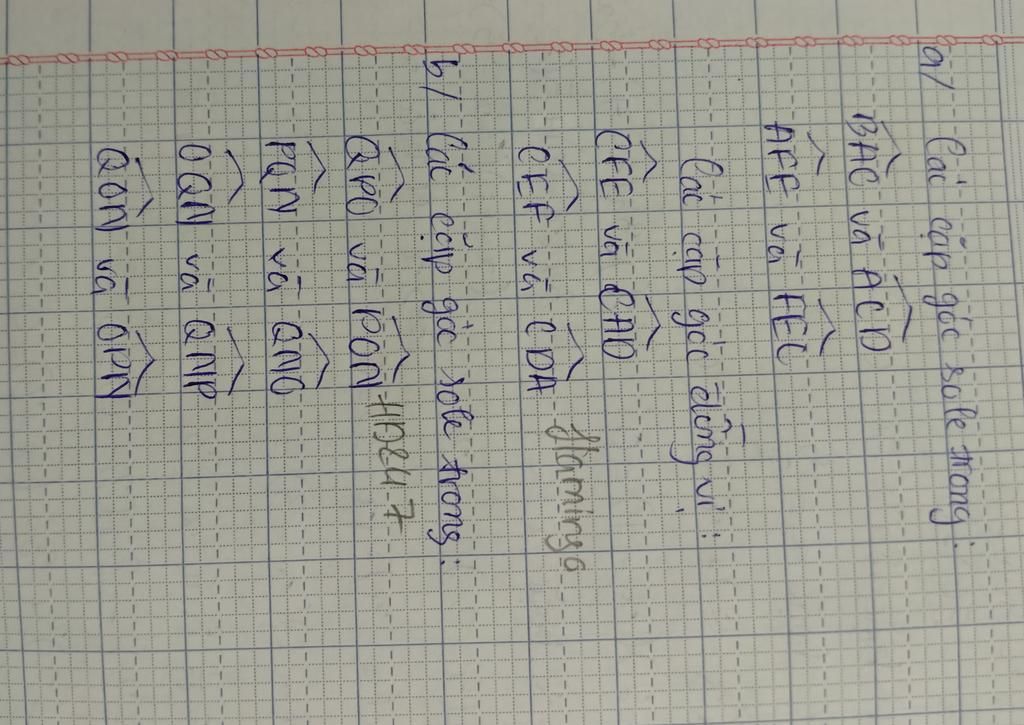 a/ Các cặp góc sole trong:
BAC và ACD
AFE và FEC
Các cặp góc đồng vị:
CFE và CAD
CEF và CDA
flamingo
b/ Các cặp góc sole trong:
QPO và PON
HD247
PQN và QNO
OQN và QNP
QON và OPN